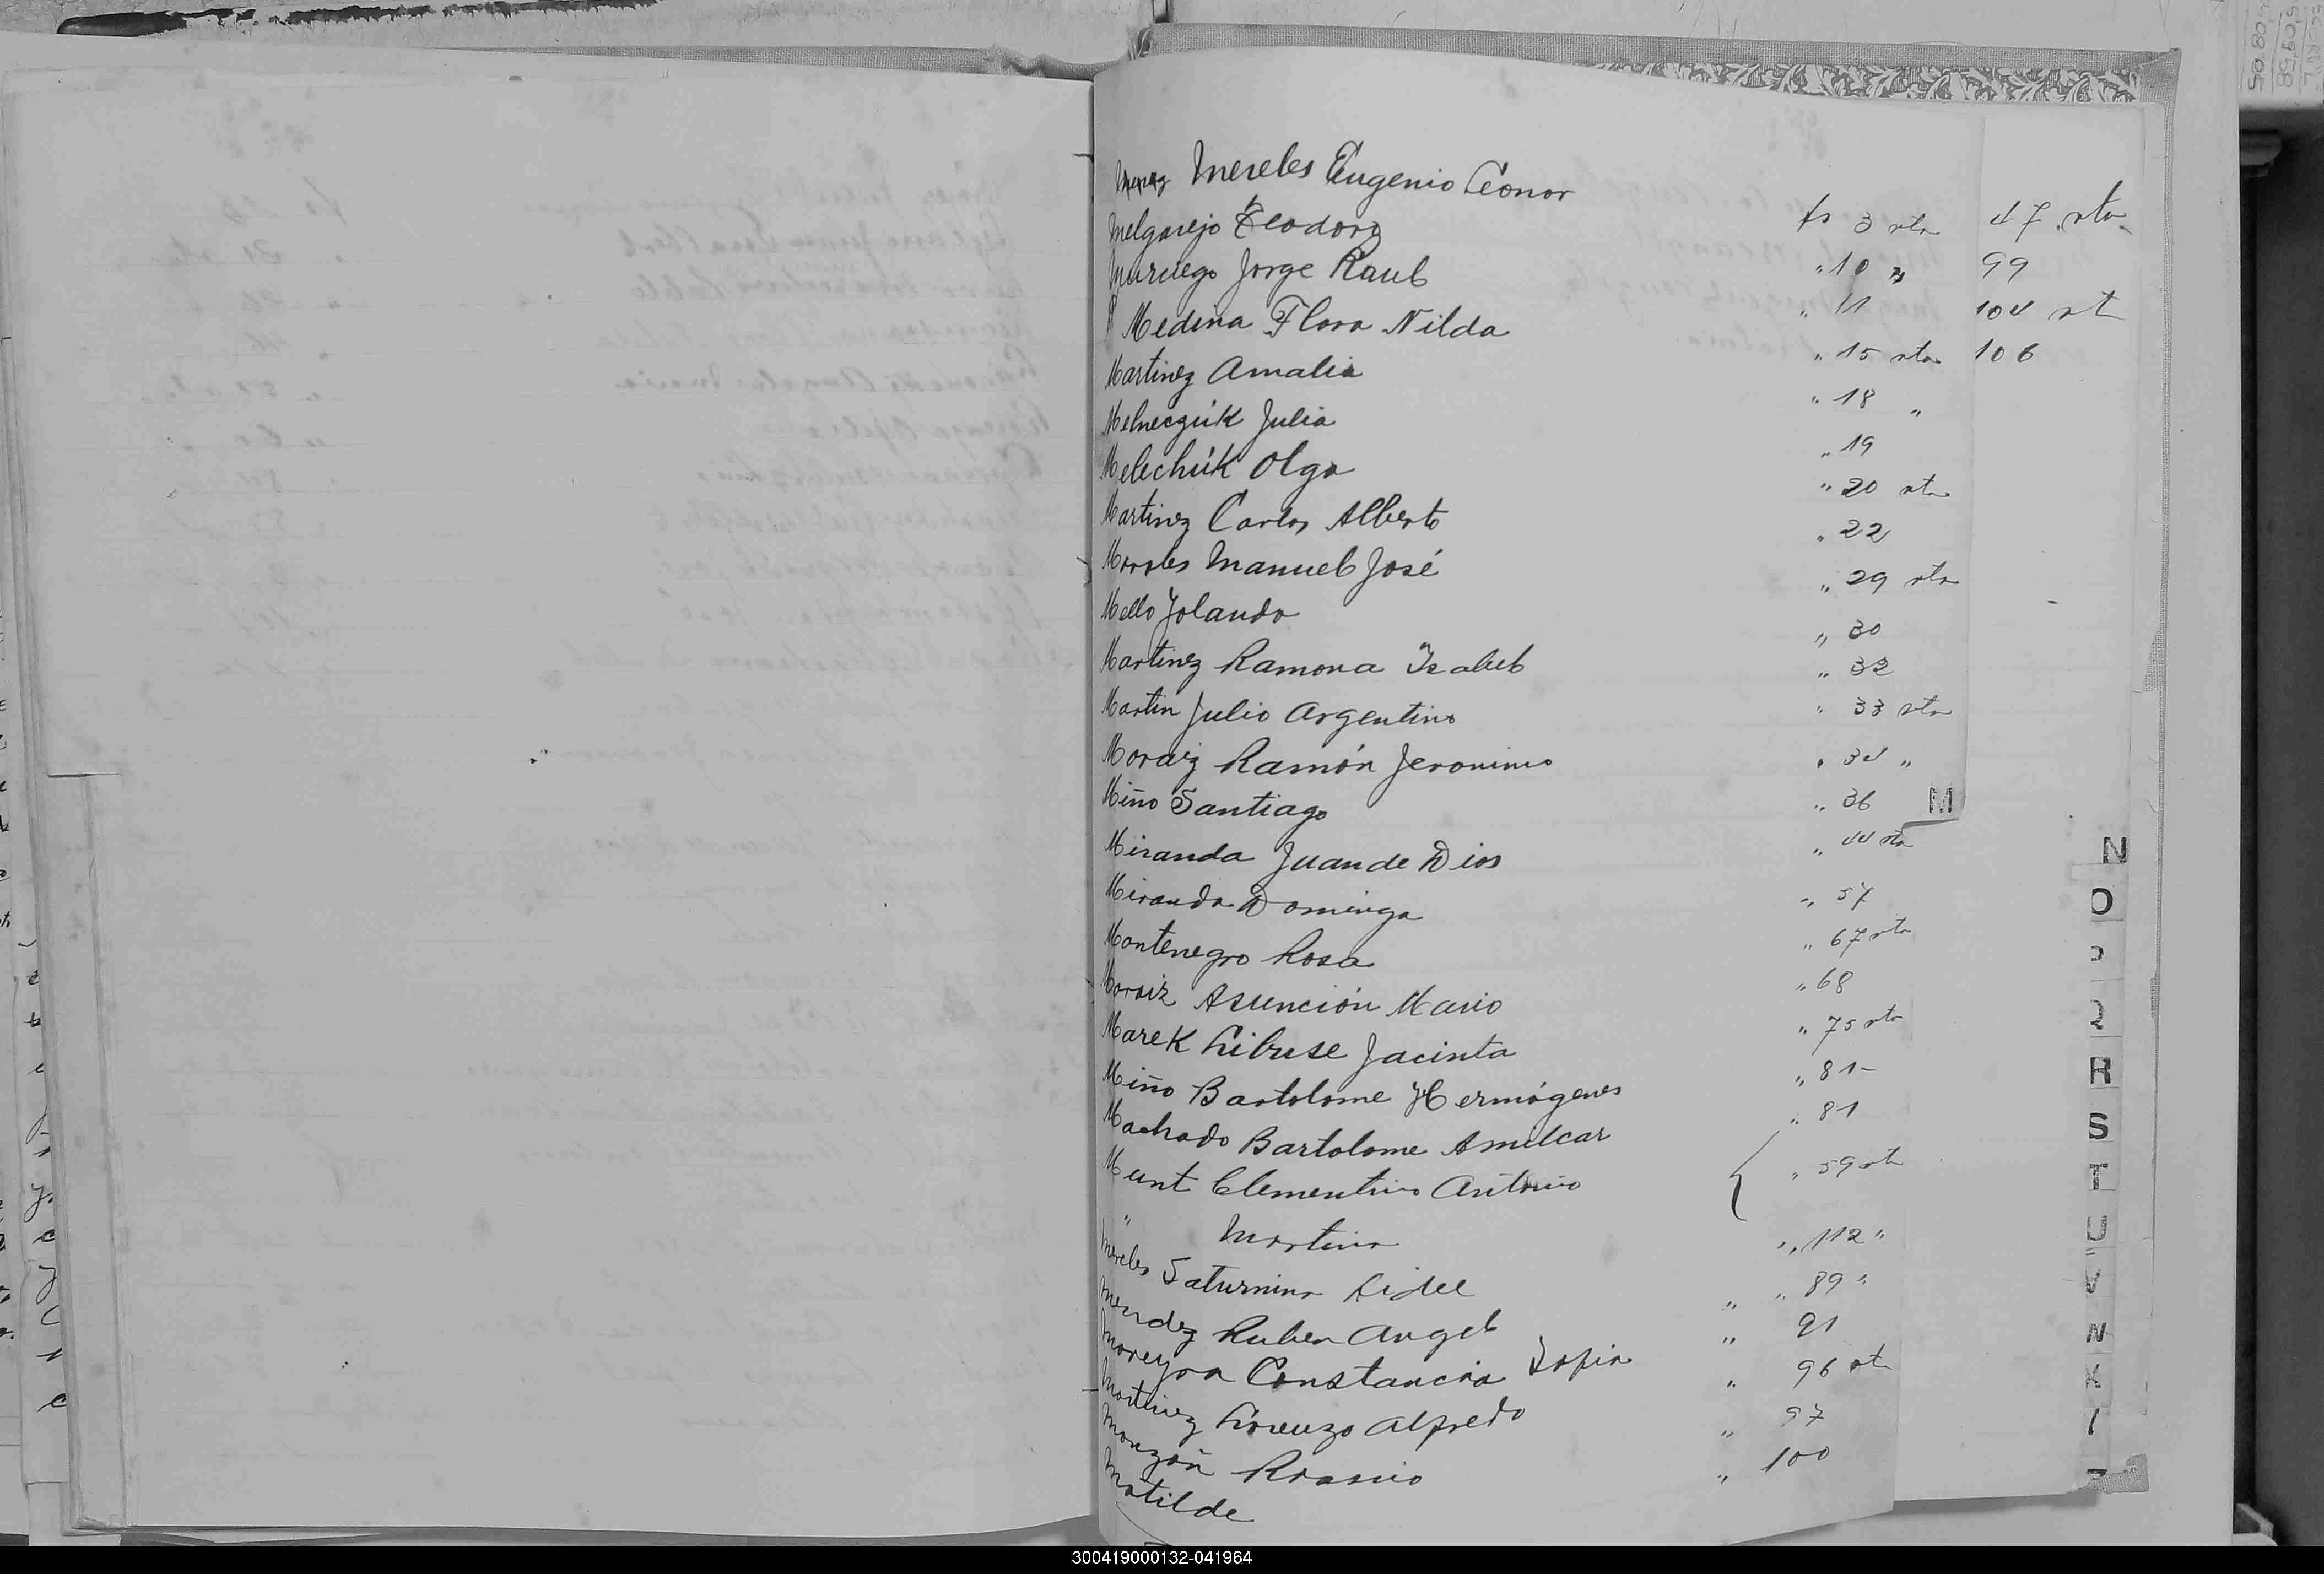 Mereles Eugenio Leonor fs 3 vta 47 vta
Melgarejo Teodoro " 10 " 99
Muruego Jorge Raul " 11 104 vt
Medina Flora Nilda " 15 vta 106
Martinez Amalia " 18 "
Melneczúk Julia " 19
Melechúk Olga " 20 vta
Martinez Carlos Alberto " 22
Morales Manuel José " 29 vta
Mello Yolanda " 30
Martinez Ramona Isabel " 32
Martin Julio Argentino " 33 vta
Moraiz Ramón Jeronimo " 34 "
Miño Santiago " 36
M
Miranda Juan de Dios " 44 vta
Miranda Dominga " 57
Montenegro Rosa " 67 vta
Moraiz Asunción Mario " 68
Marek Libuse Jacinta " 75 vta
Miño Bartolome Hermógenes " 81
Machado Bartolome Amilcar " 81
Munt Clementino Antonio " 59 vta
" Martina " 112 "
Mereles Saturnino Fidel " 89 "
Mendez Ruben Angel " 91
Moreyra Constancia Sofia " 96 vt
Martinez Lorenzo Alfredo " 97
Monzón Rosario " 100
Matilde
N
O
P
Q
R
S
T
U
V
W
X
Y
Z
300419000132-041964